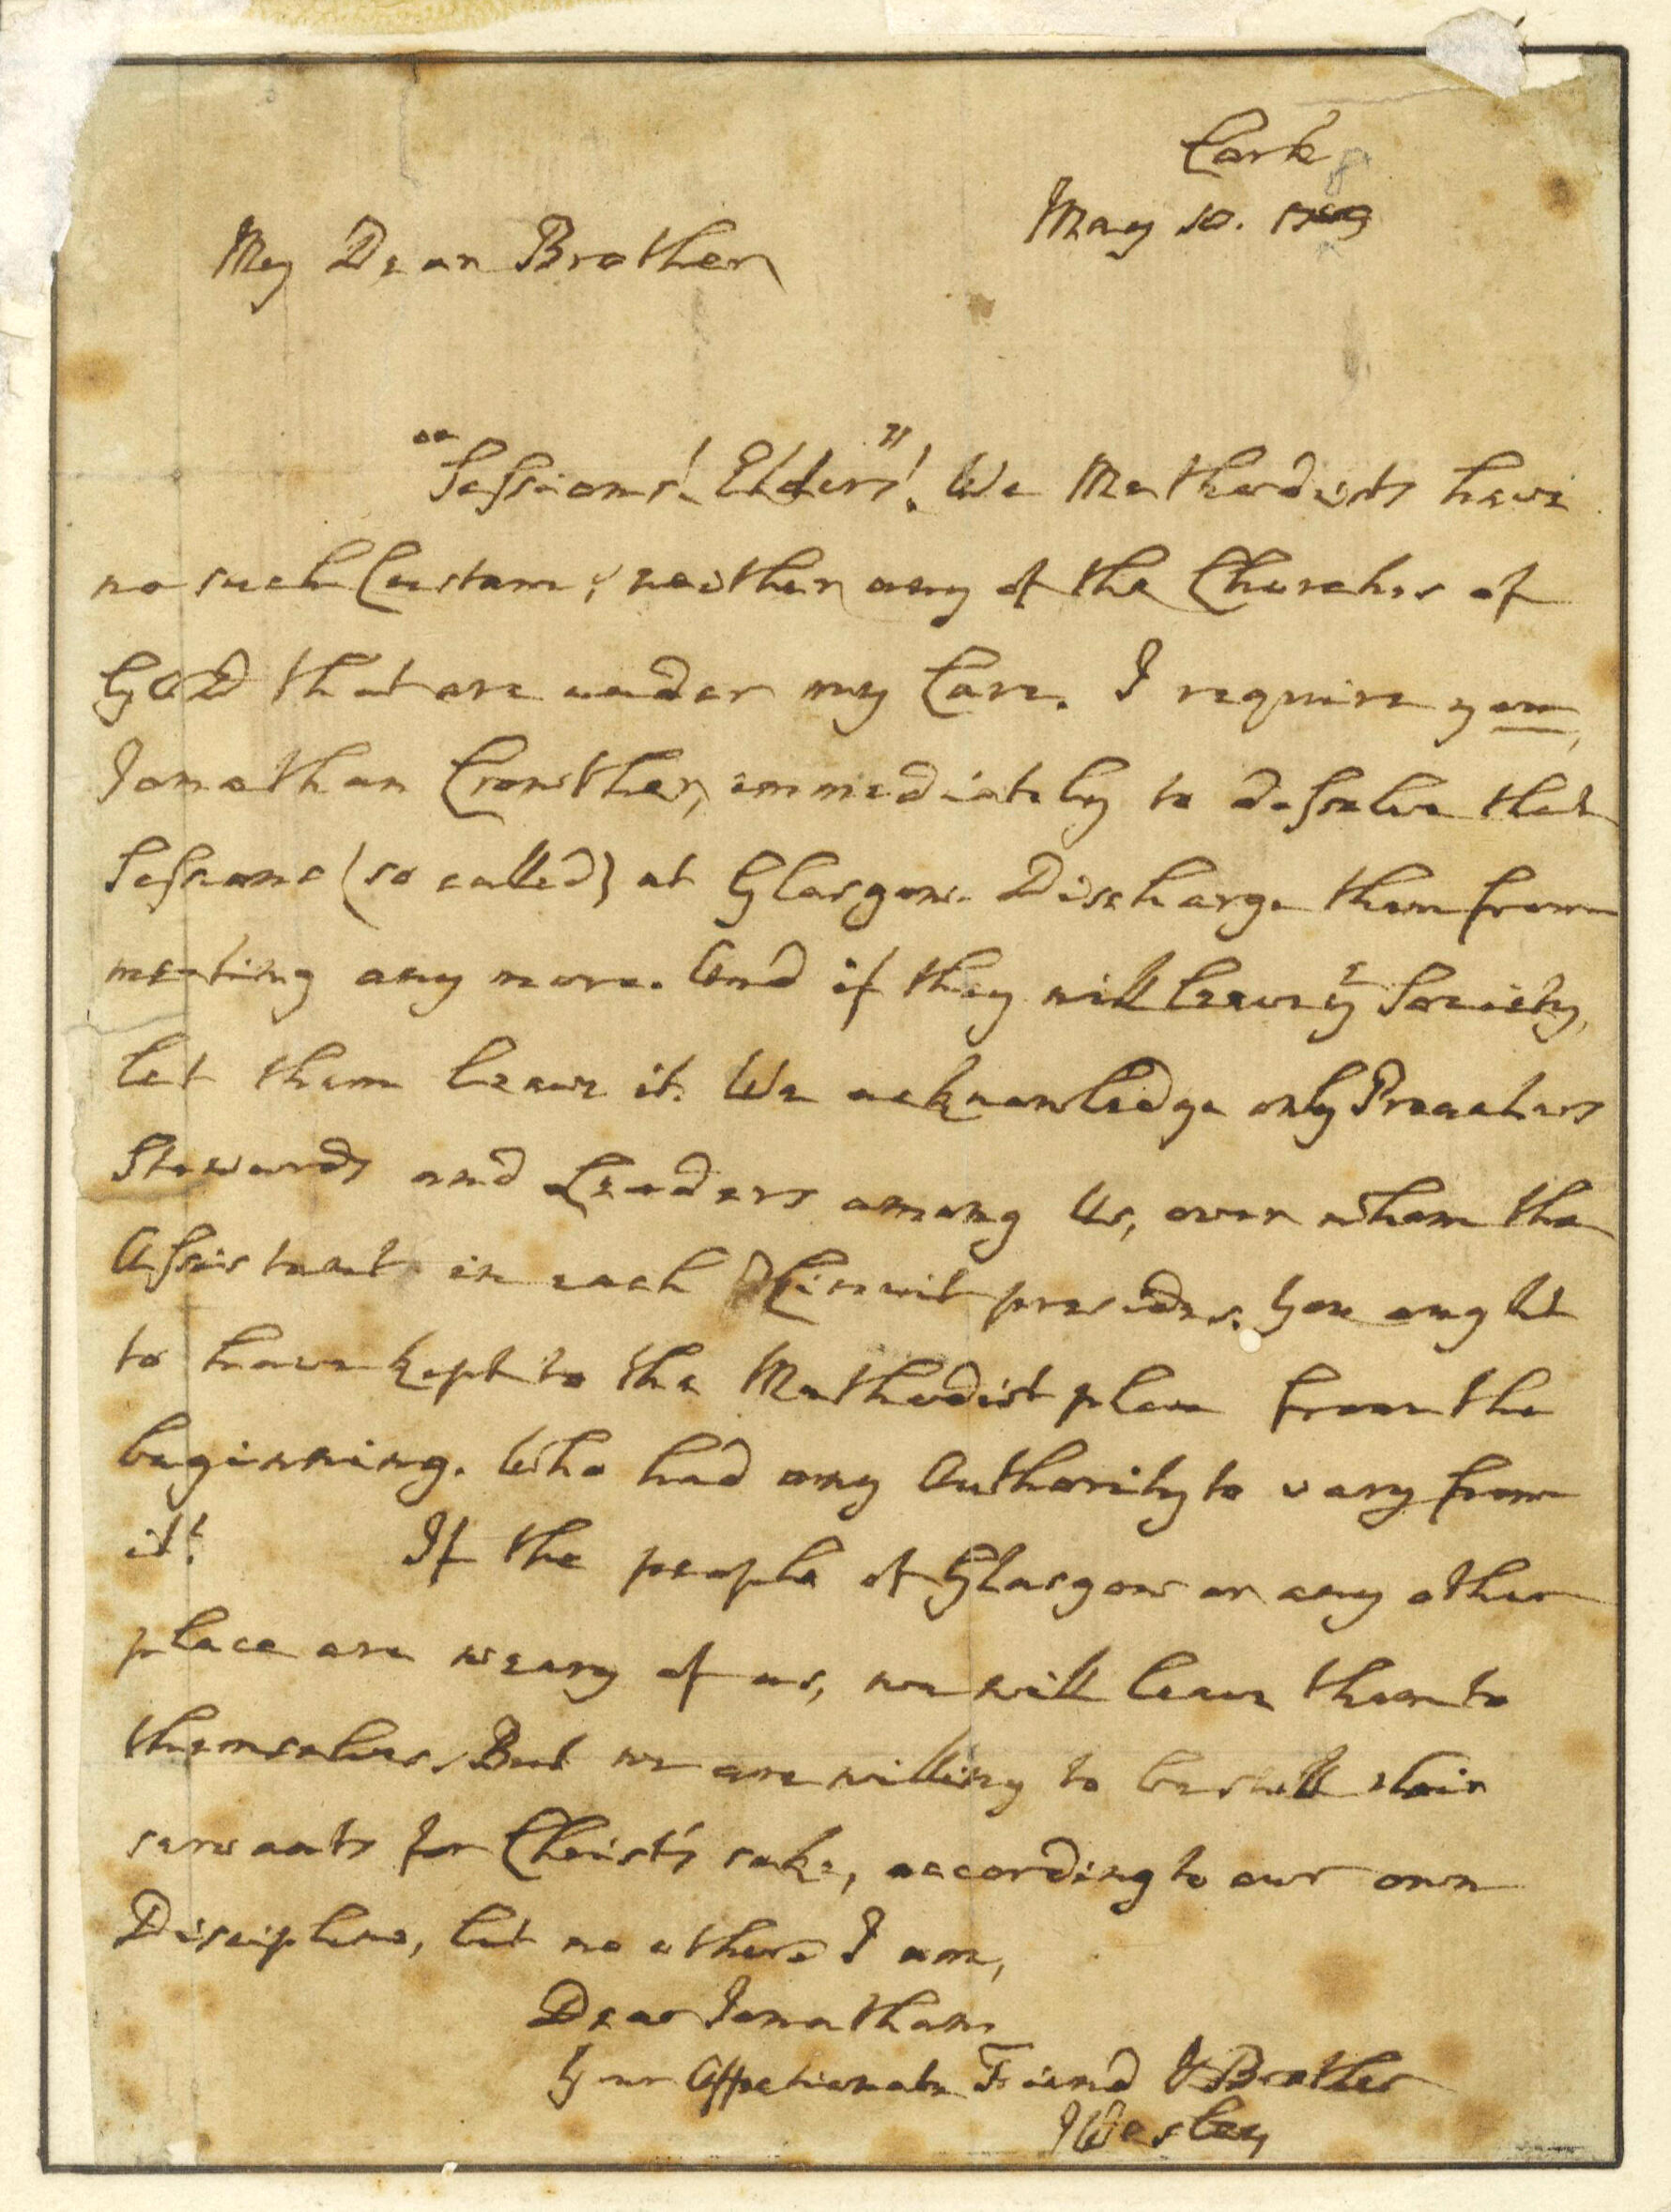 Cork
May 10. 1789
My Dear Brother
"Sessions! Elders"! We Methodists have
no such Custom, neither any of the Churches of
GOD that are under my Care. I require you,
Jonathan Crowther, immediately to dissolve that
Session (so called) at Glasgow. Discharge them from
meeting any more. And if they will leave ye Society,
let them leave it. We acknowledge only Preachers
Stewards and Leaders among Us, over whom the
Assistant in each Circuit presides. You ought
to have kept to the Methodist plan from the
beginning. Who had any Authority to vary from
it? If the people of Glasgow or any other
place are weary of us, we will leave them to
themselves. But we are willing to be still their
servants for Christ's sake, according to our own
Discipline, but no other. I am,
Dear Jonathan
Your Affectionate Friend & Brother
J Wesley